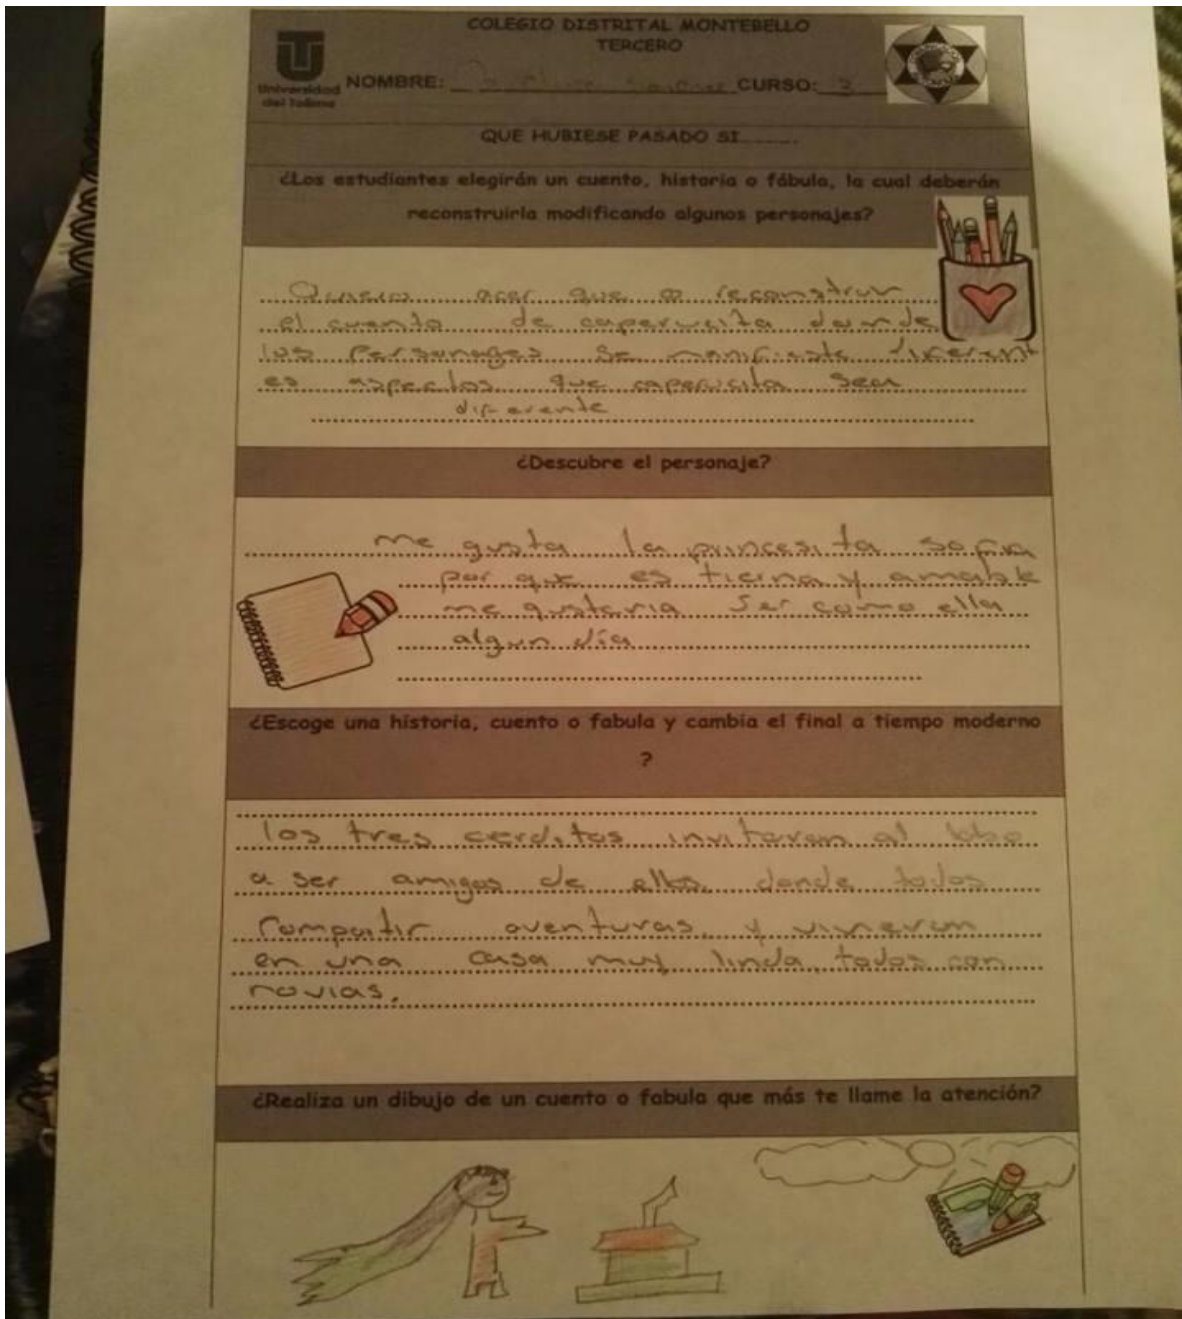 COLEGIO DISTRITAL MONTEBELLO
TERCERO
Universidad
del Tolima
NOMBRE: CURSO: 3
QUE HUBIESE PASADO SI.........
¿Los estudiantes elegirán un cuento, historia o fábula, la cual deberán
reconstruirla modificando algunos personajes?
acer que reconstruir
el cuento de caperusita donde
los personages se manifieste diferent
es aspectos que caperucita sea
diferente
¿Descubre el personaje?
me gusta la princesita sofia
por que es tierna y amable
me gustaria ser como ella
algun día
¿Escoge una historia, cuento o fabula y cambia el final a tiempo moderno
?
los tres cerditos invitaron al lobo
a ser amigos de ellos donde todos
compartir aventuras, y vivieron
en una casa muy linda, todos con
novias.
¿Realiza un dibujo de un cuento o fabula que más te llame la atención?